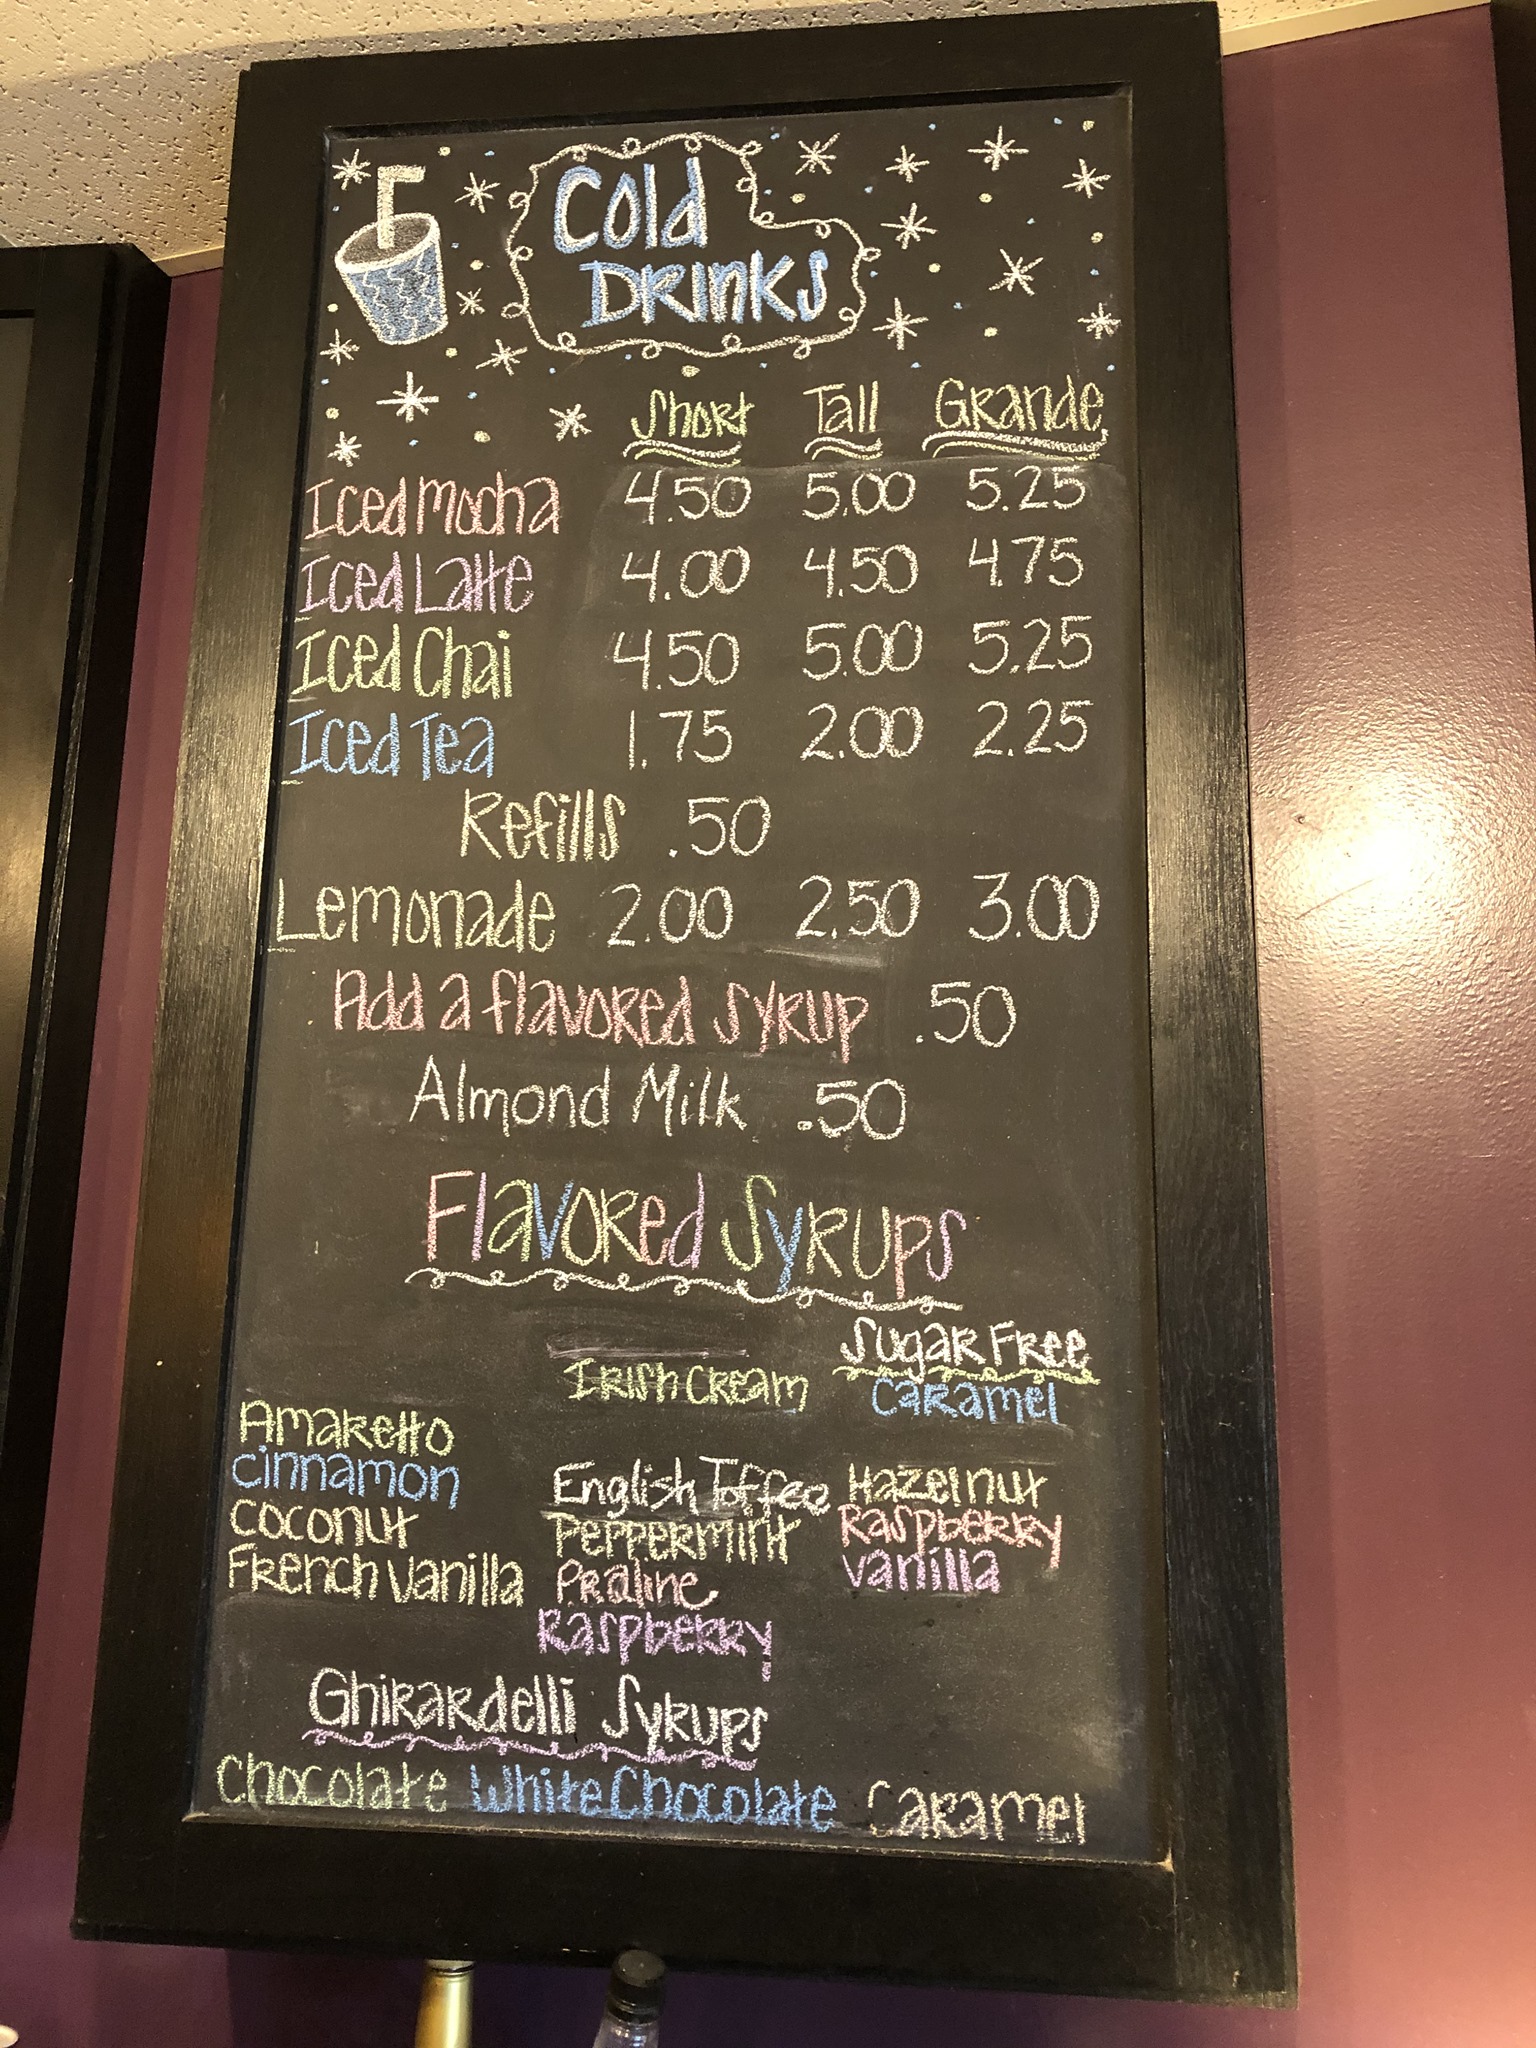 Cold
Drinks
Short Tall Grande
Iced Mocha 4.50 5.00 5.25
Iced Latte 4.00 4.50 4.75
Iced Chai 4.50 5.00 5.25
Iced Tea 1.75 2.00 2.25
Refills .50
Lemonade 2.00 2.50 3.00
Add a flavored syrup .50
Almond Milk .50
Flavored Syrups
Amaretto
Cinnamon
Coconut
French Vanilla
Irish Cream
English Toffee
Peppermint
Praline
Raspberry
Sugar Free
Caramel
Hazelnut
Raspberry
Vanilla
Ghirardelli Syrups
Chocolate White Chocolate Caramel